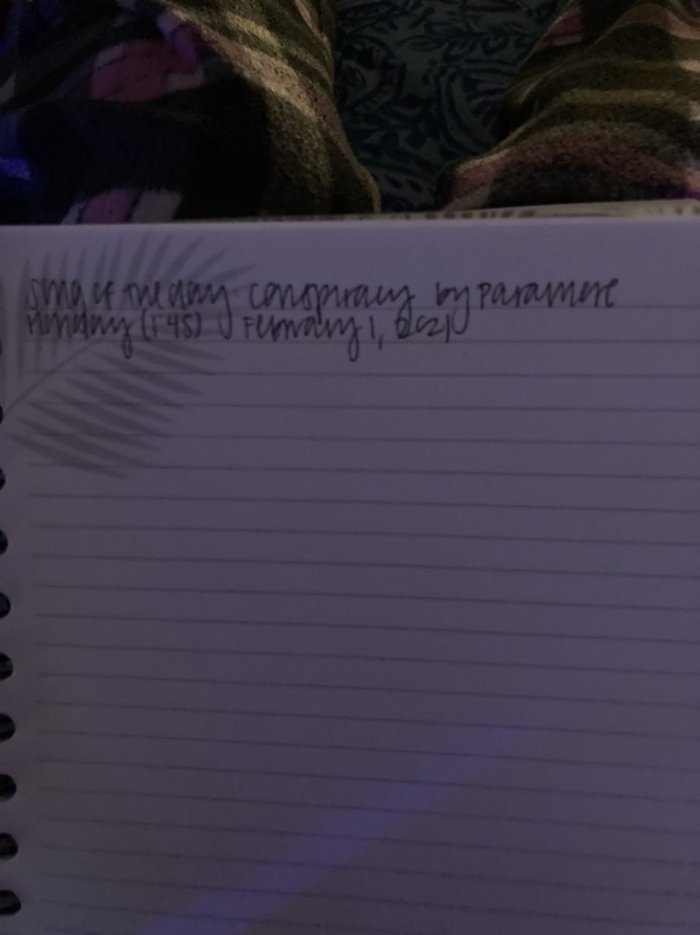 song of the day: conspiracy by paramore
monday (1:45) February 1, 2021